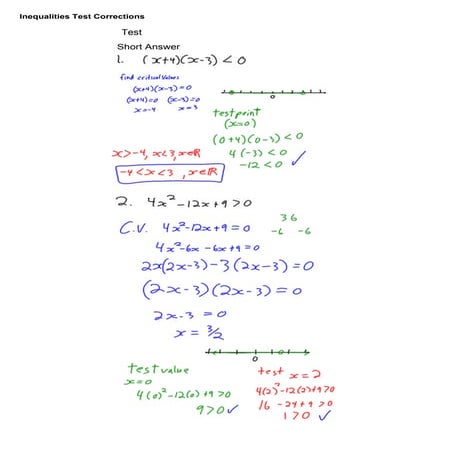 Inequalities Test Corrections
Test
Short Answer
1. (x+4)(x-3) < 0
find critical values
(x+4)(x-3)=0
(x+4)=0 (x-3)=0
x=-4 x=3
0
test point
(x=0)
(0+4)(0-3) < 0
4(-3) < 0
-12 < 0 ✓
x>-4, x<3, x∈ℝ
-4<x<3, x∈ℝ
2. 4x²-12x+9>0
C.V. 4x²-12x+9=0
36
-6 -6
4x²-6x-6x+9=0
2x(2x-3)-3(2x-3)=0
(2x-3)(2x-3)=0
2x-3=0
x=3/2
0
test value
x=0
4(0)²-12(0)+9>0
9>0 ✓
test x=2
4(2)²-12(2)+9>0
16-24+9>0
1>0 ✓